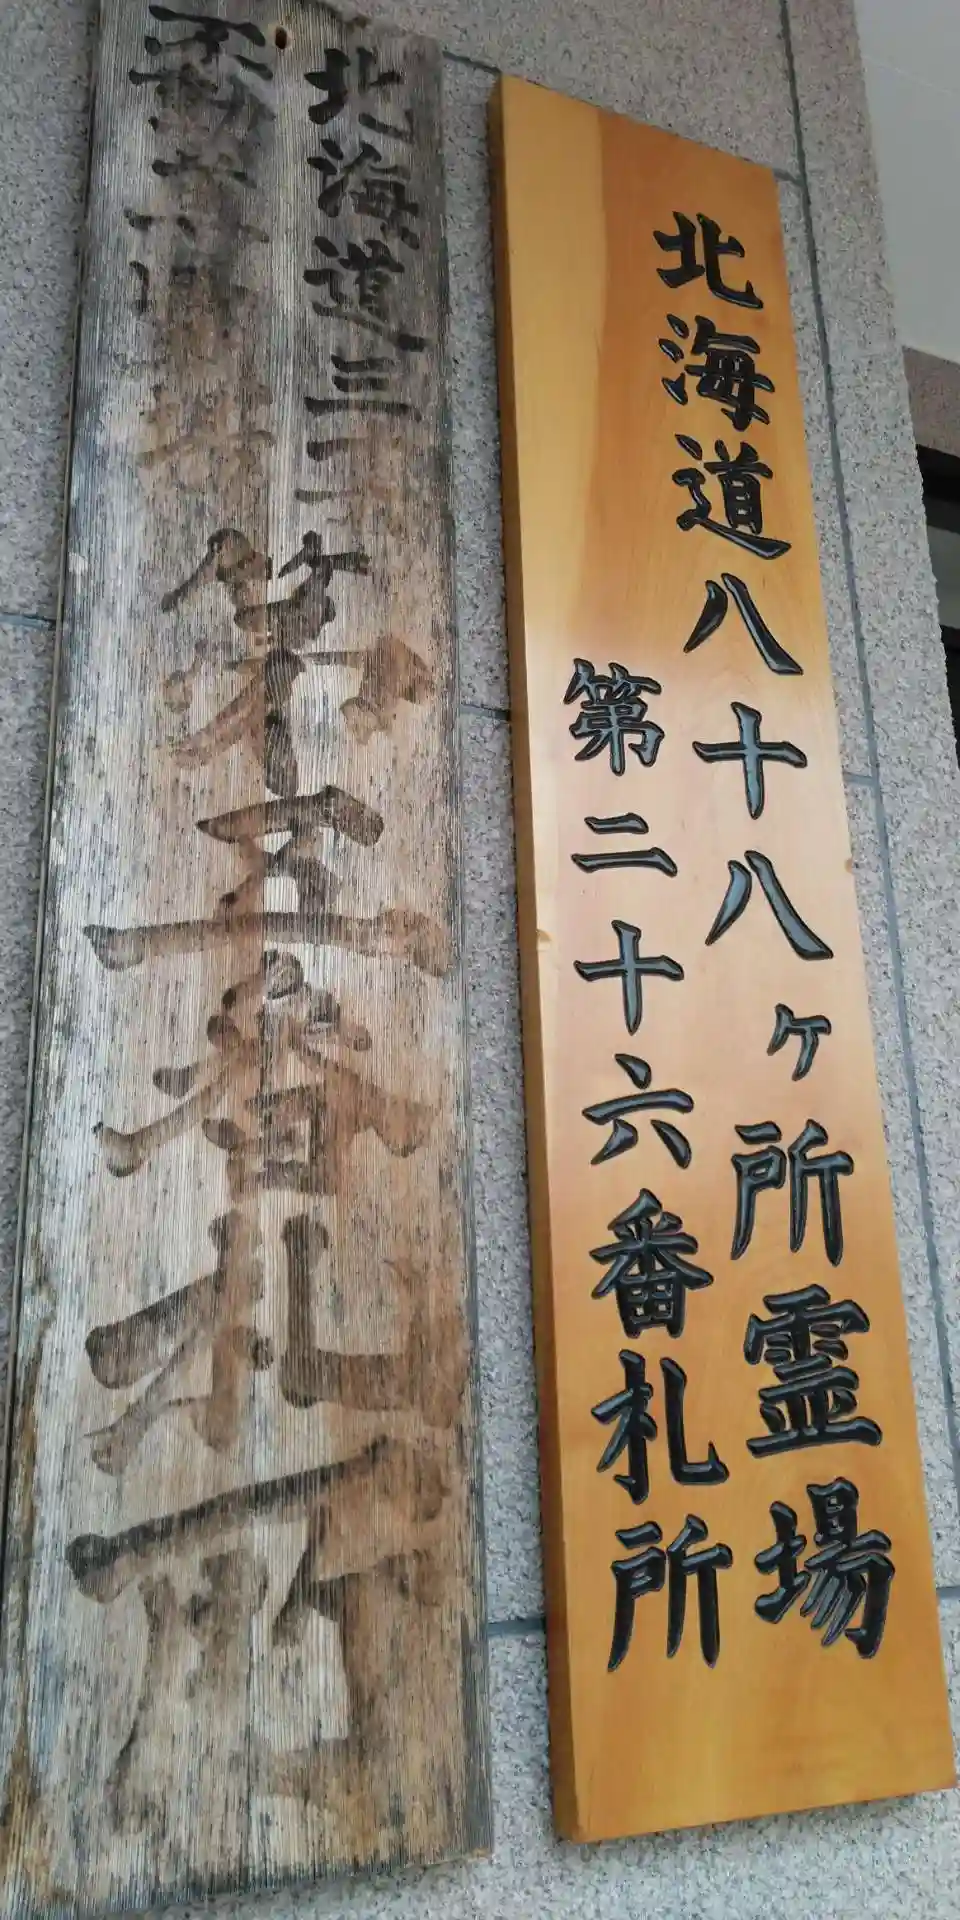 北海道八十八ヶ所霊場
第二十六番札所
北海道三十
不動
第五番札所